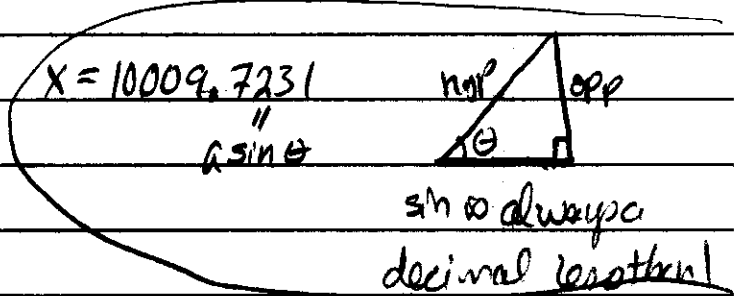 x = 10009.7231
"
a sin θ
hyp
opp
θ
sin is always a
decimal less than 1